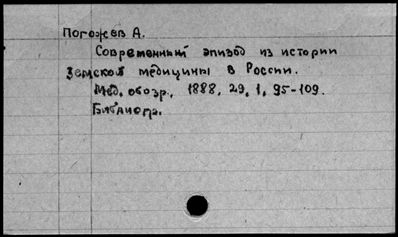 Погожев А.
Современный эпизод из истории
земской медицины в России.
Мед. обозр., 1888, 29, 1, 95-109.
Библиогр.